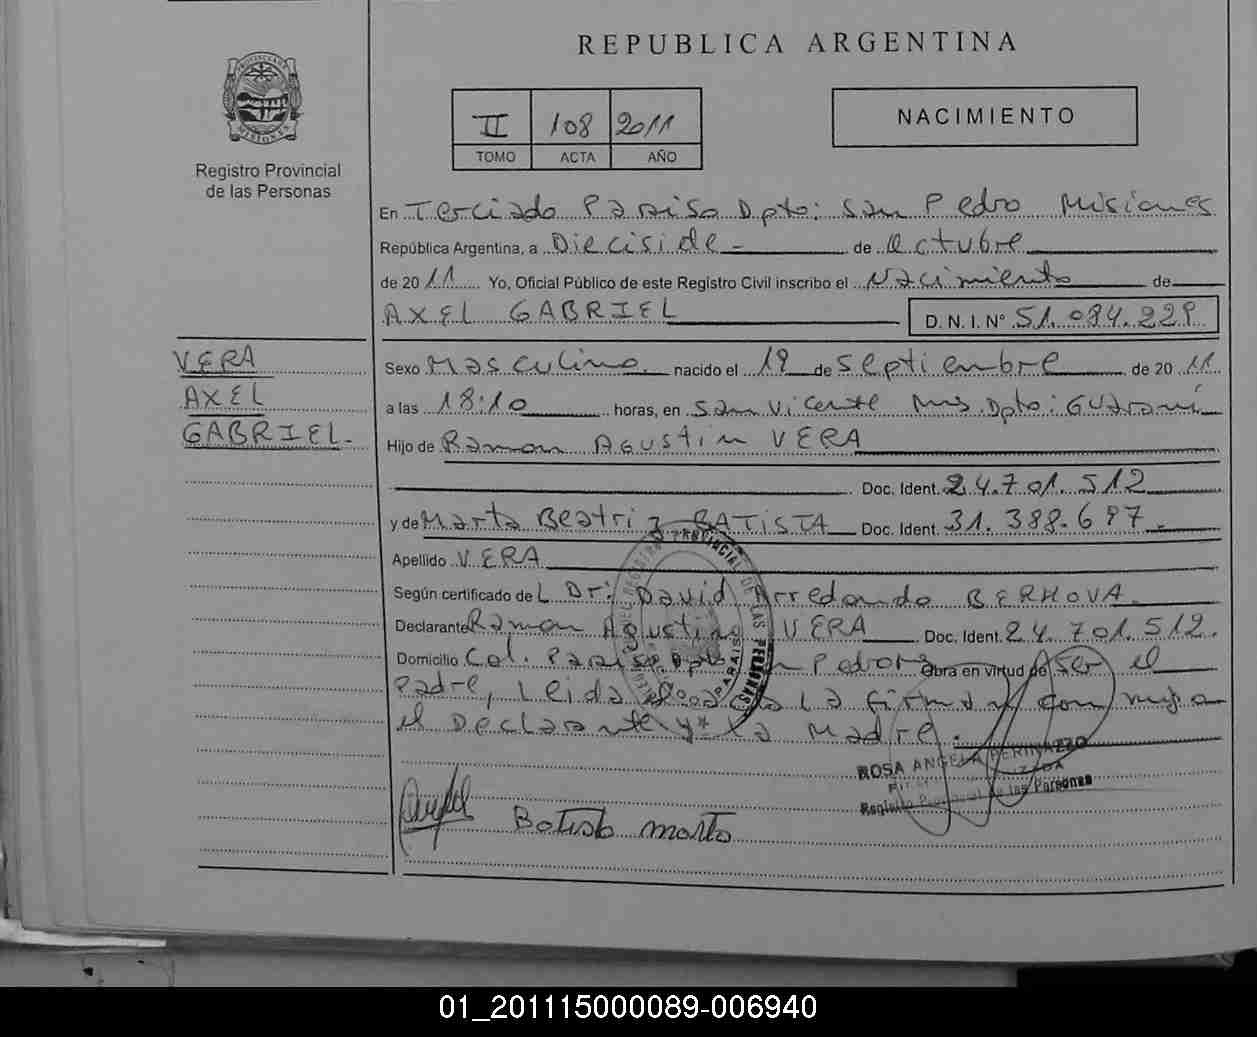 REPUBLICA ARGENTINA
PROVINCIA DE MISIONES
Registro Provincial
de las Personas
II 108 2011
TOMO ACTA AÑO
NACIMIENTO
En Terciado Paraiso Dpto: San Pedro Misiones
República Argentina, a Dieciside - de Octubre
de 2011 Yo, Oficial Público de este Registro Civil inscribo el Nacimiento de
AXEL GABRIEL D.N.I. N° 51.084.229
VERA
AXEL
GABRIEL.-
Sexo Masculino. nacido el 19 de septiembre de 2011
a las 18:10 horas, en San Vicente Mns. Dpto: Guaraní
Hijo de Ramon Agustin VERA
Doc. Ident. 24.701.512
y de Marta Beatriz BATISTA Doc. Ident. 31.388.697.-
Apellido VERA
Según certificado de L Dr: David Arredondo BERHOVA.
Declarante Ramon Agustin VERA Doc. Ident. 24.701.512.
Domicilio Col. Paraiso Dpto Pedro Obra en virtud de Ser el
Padre, Leida el acta la firman conmigo
el Declarante y la Madre.
REGISTRO PROVINCIAL DE LAS PERSONAS
PARAISO
ROSA ANGELA PERINAZZO
Registro Provincial de las Personas
Batista Marta
01_201115000089-006940